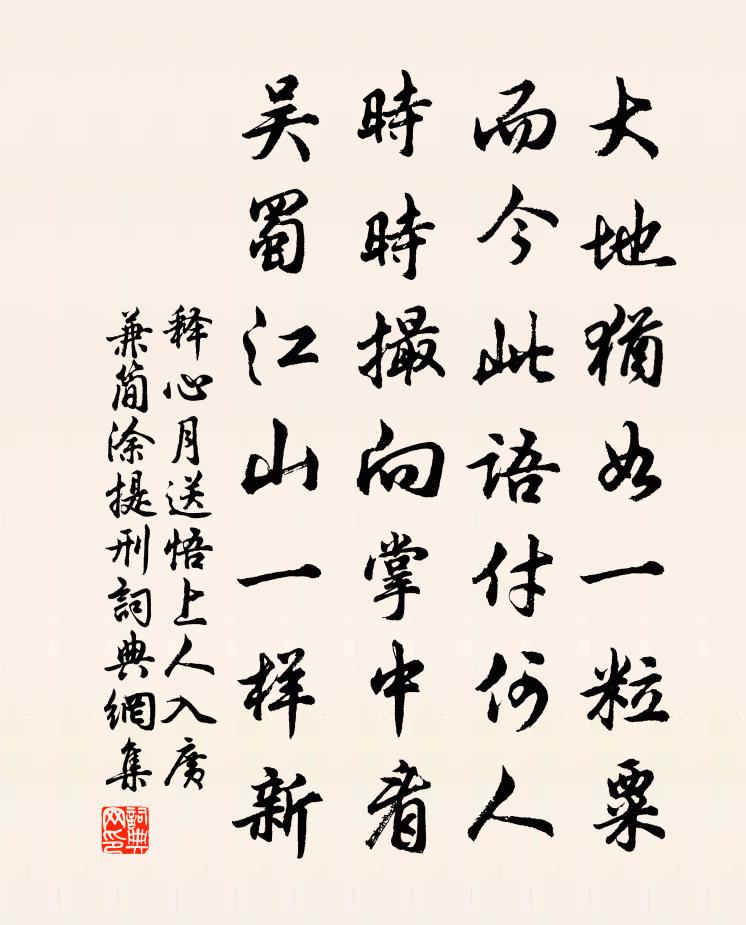 大地猶如一粒粟
而今此語付何人
時時撮向掌中看
吴蜀江山一样新
释心月送悟上人入廣
兼簡涂提刑詞典網集
詞典
网印